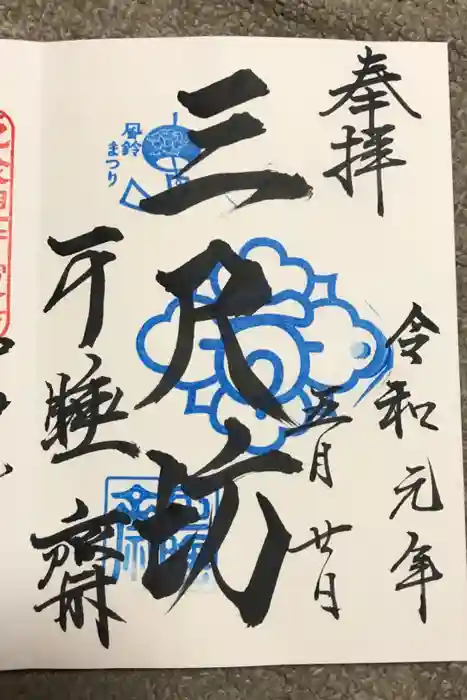 奉拝
令和元年
五月廿日
三尺坊
風鈴
まつり
可睡齋